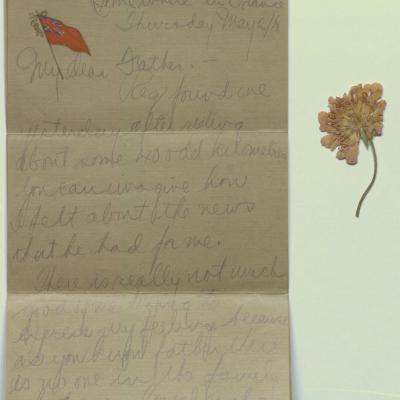 Somewhere in France
Thursday May 2/18
My dear Father. —
Reg found me
yesterday after riding
about some 20 odd kilometres
You can imagine how
I felt about the news
that he had for me.
There is really not much
good of me trying to
express my feelings because
as you know father there
is no one in the